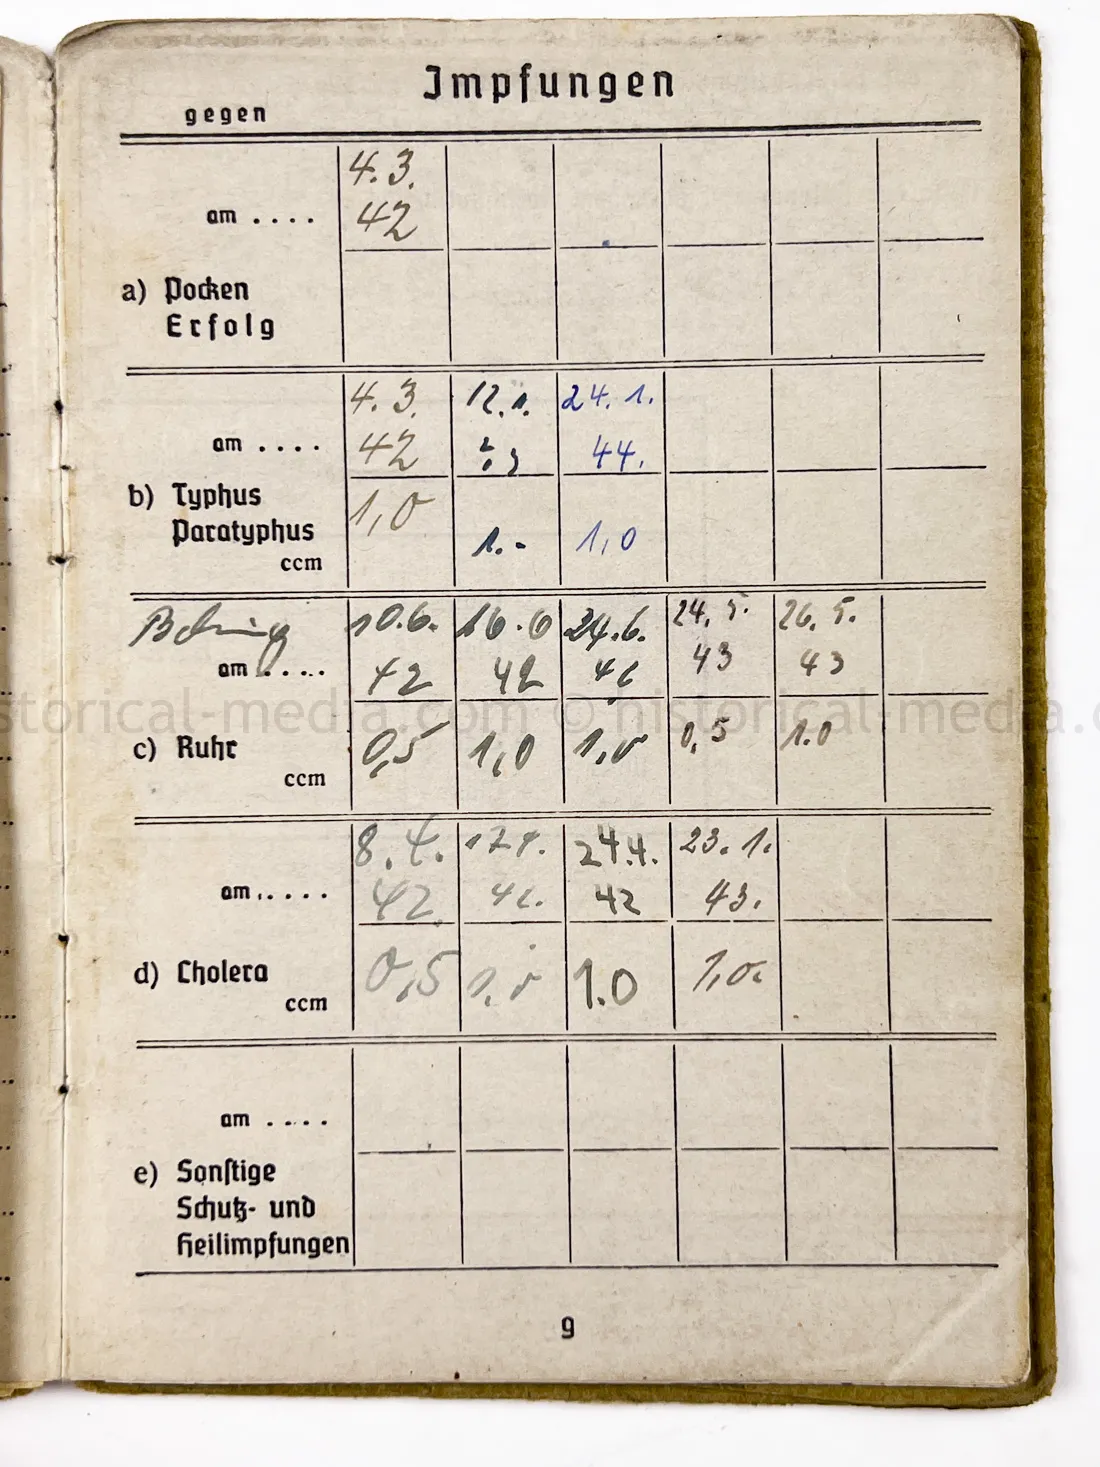 Impfungen
gegen
4.3.
am . . . . 42
a) Pocken
Erfolg
4. 3. 12. 1. 24. 1.
am . . . . 42 44.
b) Typhus 1,0
Paratyphus 1.- 1,0
ccm
Behring 10.6. 16.6 24.6. 24. 5. 26. 5.
am . . . . 42 42 42 43 43
c) Ruhr 0,5 1,0 1,0 0,5 1.0
ccm
8. 4. 17 4. 24.4. 23. 1.
am . . . . . 42 42. 42 43.
d) Cholera 0,5 1,0 1.0 1,0.
ccm
am . . . .
e) Sonstige
Schutz- und
Heilimpfungen
9
storical-media.com © historical-media.c